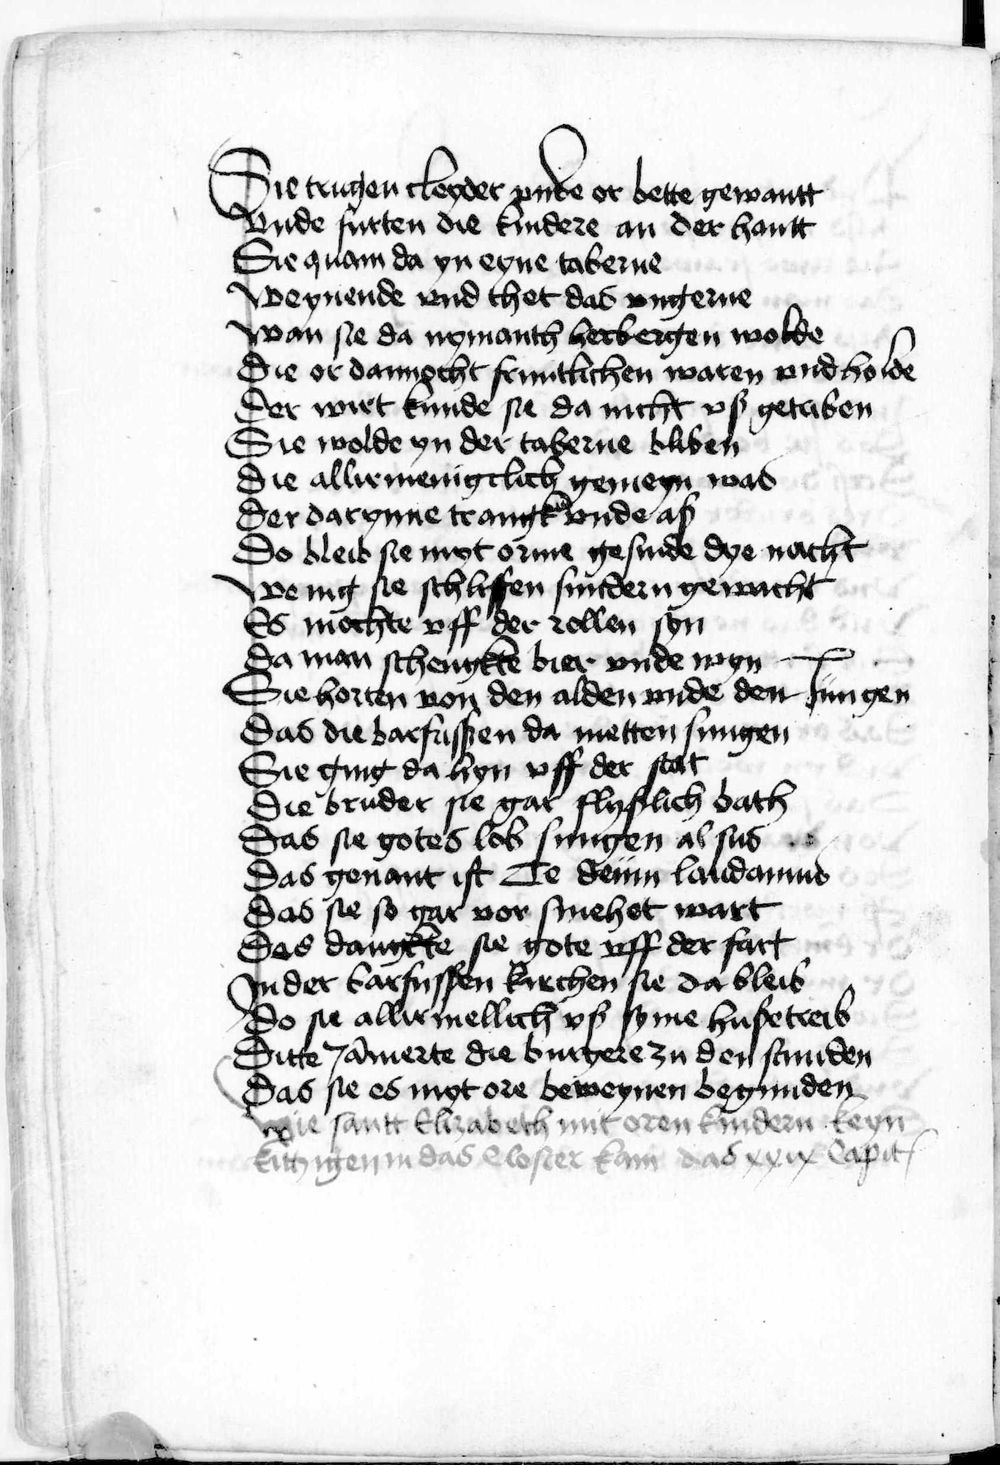 Sie trugen cleyder vnde or bette gewantt
Vnde furten die kindere an der hantt
Sie quam da yn eyne taberne
Weynende vnd thet das vngerne
Wan sie da nymanth herbergen wolde
Die or dannocht fruntlichen waren vnd holde
Der wirt kunde sie da nicht vß getriben
Sie wolde yn der taberne bliben
Die allirmeniglich gemeyn was
Der darynne trangk vnde aß
Do bleib sie myt orme gesinde dye nacht
Wenig sie schliffen sundern gewacht
Es mochte vff der zollen syn
Da man schenygkte bier vnde wyn
Sie horten von den alden vnde den Jungen
Das die barfussen da metten sungen
Sie ging da hyn vff der stat
Die bruder sie gar flyßlich bath
Das sie gotes lob sungen al sus
Das genant ist Te deum laudamus
Das sie so gar vor smehet wart
Das dangkte sie gote vff der fart
In der barfussen kirchen sie da bleib
Do sie allirmellich vß syme huße treib
Ditte Jamerte die burgere zu den stunden
Das sie es myt ore beweynen begunden
Wie santt Elizabeth mit oren kindern keyn
kitzigen in das Closter kam das xxix Capit